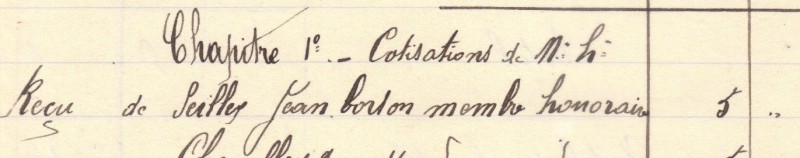 Chapitre 1º. - Cotisations de M. h.
Reçu de Seilles Jean borton membre honoraire 5 "